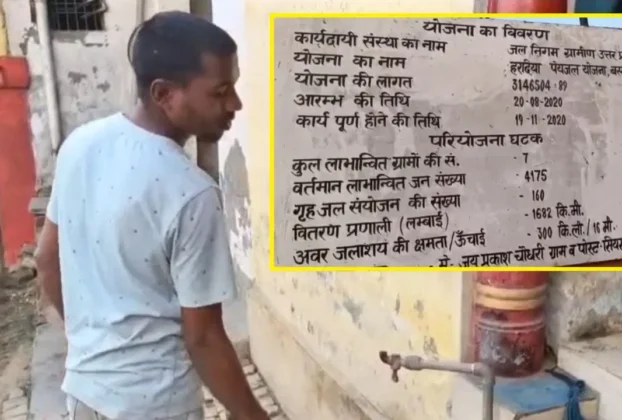 योजना का विवरण
कार्यदायी संस्था का नाम जल निगम ग्रामीण उत्तर
योजना का नाम हरदिया पेयजल योजना,
योजना की लागत 3146504.89
आरम्भ की तिथि 20-08-2020
कार्य पूर्ण होने की तिथि 19-11-2020
परियोजना घटक
कुल लाभान्वित ग्रामों की सं. - 7
वर्तमान लाभान्वित जन संख्या - 4175
गृह जल संयोजन की संख्या - 160
वितरण प्रणाली (लम्बाई) - 1682 कि.मी.
अवर जलाशय की क्षमता/ऊँचाई - 300 कि.ली./16 मी.
जय प्रकाश चौधरी ग्राम व पोस्ट-